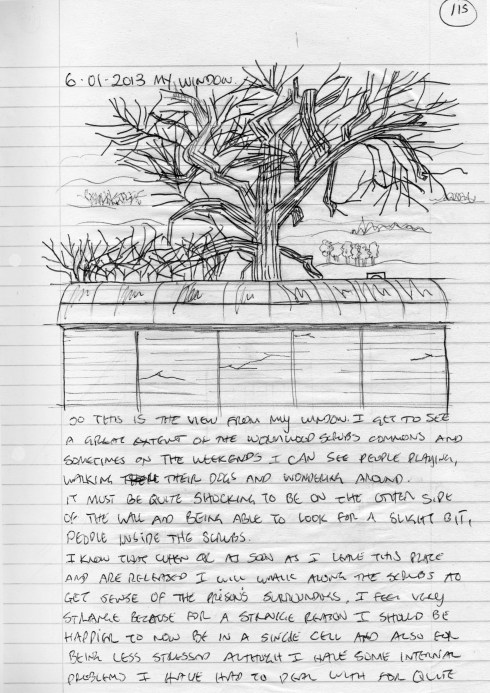 115
6·01·2013 MY WINDOW.
SO THIS IS THE VIEW FROM MY WINDOW. I GET TO SEE
A GREAT EXTENT OF THE WORMWOOD SCRUBS COMMONS AND
SOMETIMES ON THE WEEKENDS I CAN SEE PEOPLE PLAYING,
WALKING THEIR DOGS AND WONDERING AROUND.
IT MUST BE QUITE SHOCKING TO BE ON THE OTHER SIDE
OF THE WALL AND BEING ABLE TO LOOK FOR A SLIGHT BIT,
PEOPLE INSIDE THE SCRUBS.
I KNOW THAT WHEN OR AS SOON AS I LEAVE THIS PLACE
AND ARE RELEASED I WILL WALK ALONG THE SCRUBS TO
GET SENSE OF THE PRISON'S SURROUNDINGS, I FEEL VERY
STRANGE BECAUSE FOR A STRANGE REASON I SHOULD BE
HAPPIER TO NOW BE IN A SINGLE CELL AND ALSO FOR
BEING LESS STRESSED ALTHOUGH I HAVE SOME INTERNAL
PROBLEMS I HAVE HAD TO DEAL WITH FOR QUITE